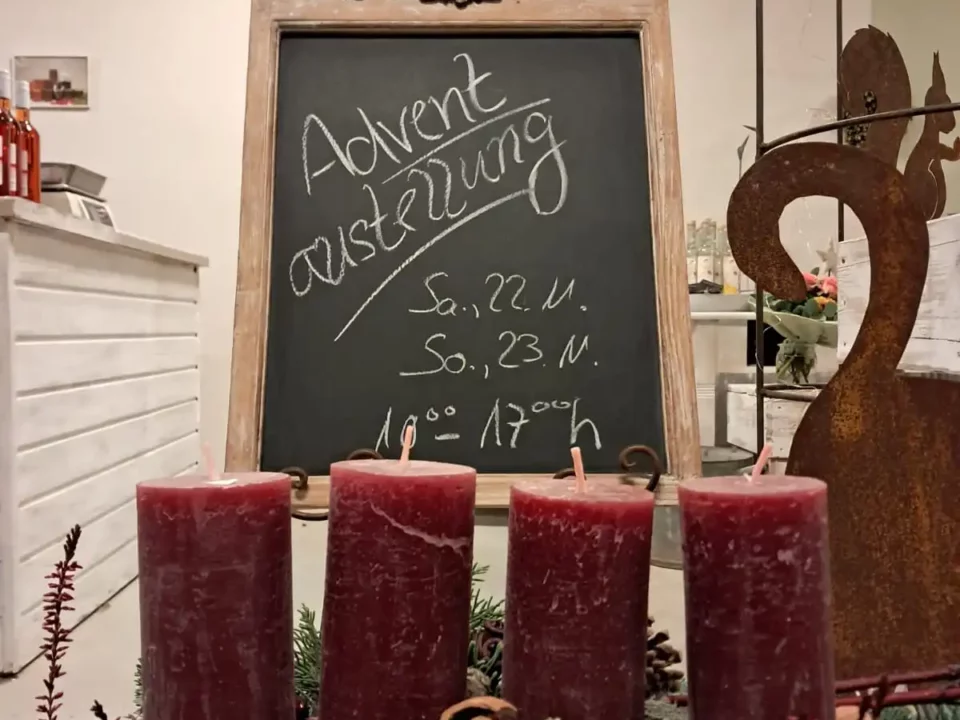 Advent
ausstellung
Sa., 22. M.
So., 23. M.
10⁰⁰ - 17⁰⁰ h